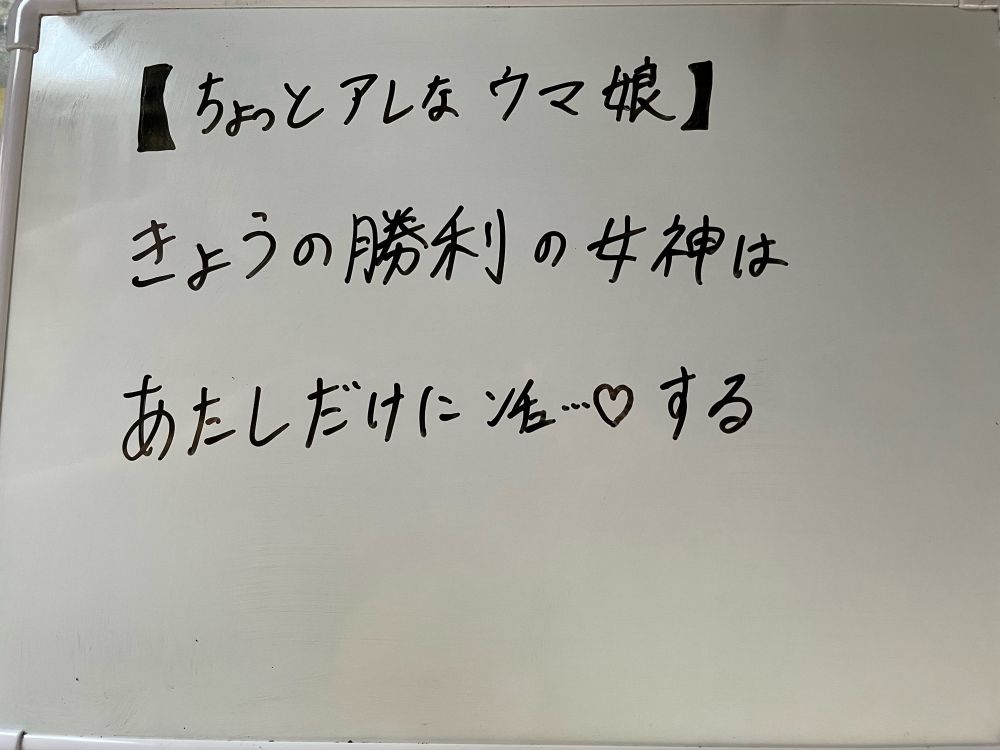 【ちょっとアレなウマ娘】
きょうの勝利の女神は
あたしだけにンチュ…♡する